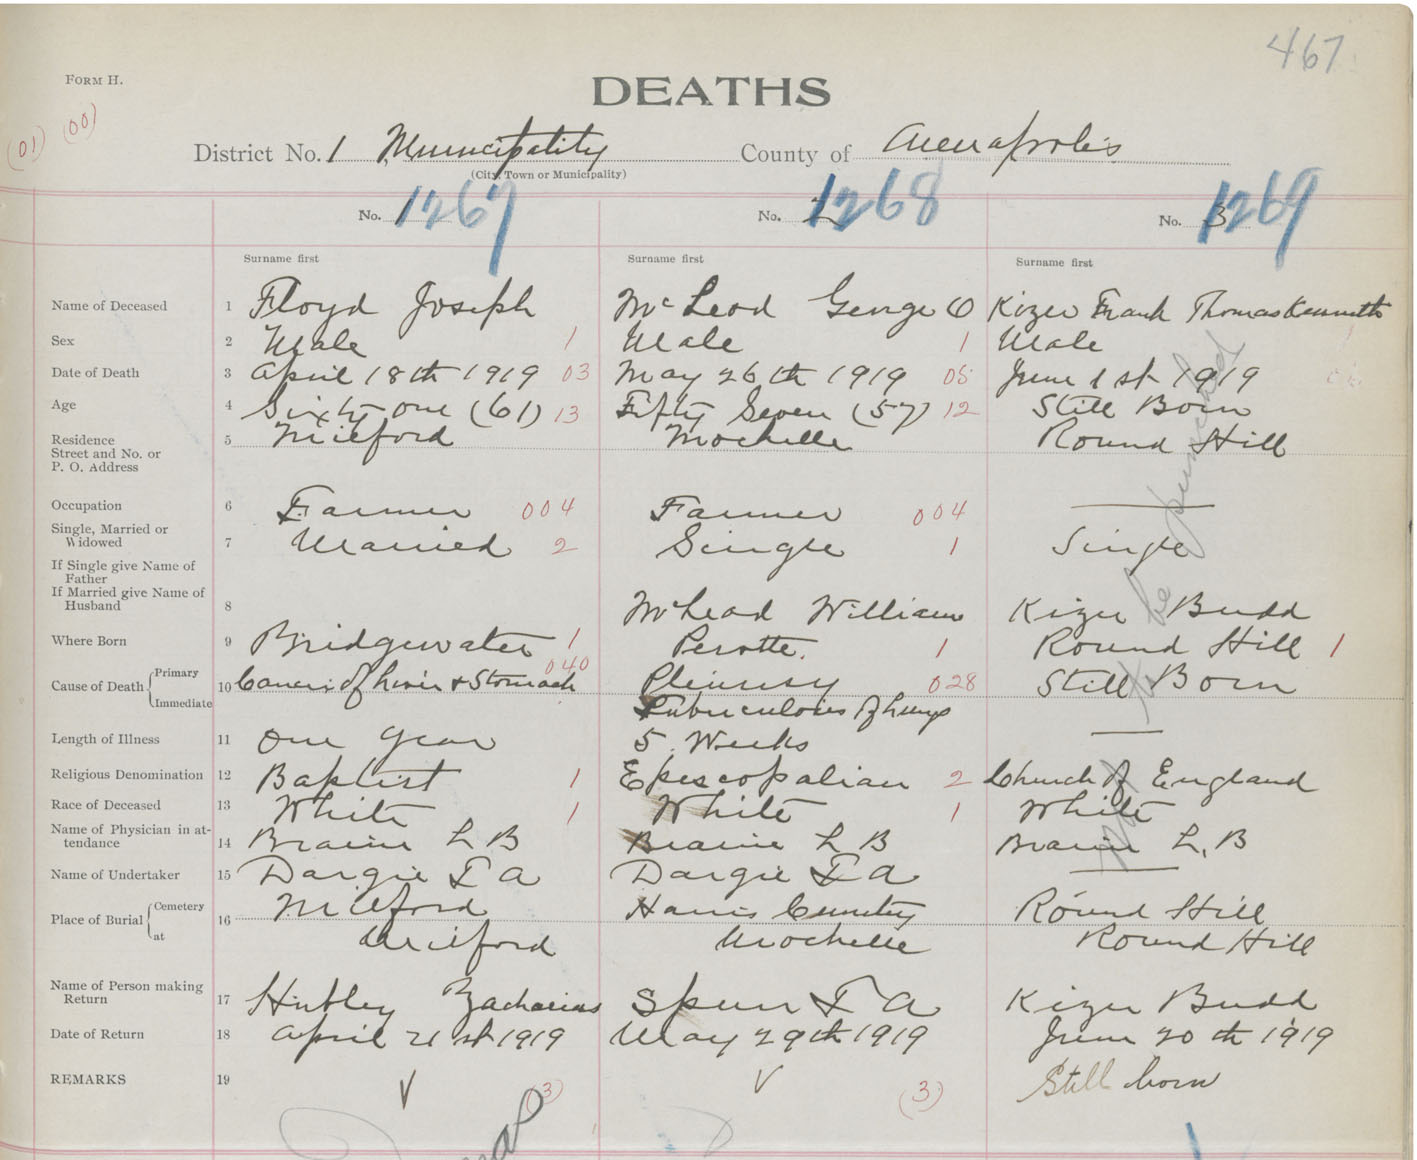 467
FORM H.
DEATHS
(01) (00)
District No. 1 Municipality County of Annapolis
(City, Town or Municipality)
No. 1267 No. 2 1268 No. 3 1269
Surname first Surname first Surname first
Name of Deceased 1 Floyd Joseph McLeod George O Kizer Frank Thomas Kenneth
Sex 2 Male 1 Male 1 Male
Date of Death 3 April 18th 1919 03 May 26th 1919 05 June 1st 1919
Age 4 Sixty one (61) 13 Fifty Seven (57) 12 Still Born
Residence 5 Milford Mochelle Round Hill
Street and No. or
P. O. Address
Occupation 6 Farmer 004 Farmer 004 —
Single, Married or
Widowed 7 Married 2 Single 1 Single
If Single give Name of
Father
If Married give Name of
Husband 8 McLeod William Kizer Budd
Where Born 9 Bridgewater 1 Perotte. 1 Round Hill 1
040
Cause of Death Primary 10 Cancer of Liver & Stomach Pleurisy 028 Still Born
Immediate Tuberculosis of Lungs
Length of Illness 11 One Year 5 Weeks —
Religious Denomination 12 Baptist 1 Episcopalian 2 Church of England
Race of Deceased 13 White 1 White 1 White
Name of Physician in at-
tendance 14 Braine L B Braine L B Braine L. B
Name of Undertaker 15 Dargie I A Dargie I A —
Place of Burial Cemetery 16 Milford Harris Cemetry Round Hill
at Milford Mochelle Round Hill
Name of Person making
Return 17 Hubley Zacharias Spurr I A Kizer Budd
Date of Return 18 April 21st 1919 May 29th 1919 June 20th 1919
REMARKS 19 (3) (3) Still born
not to be punched